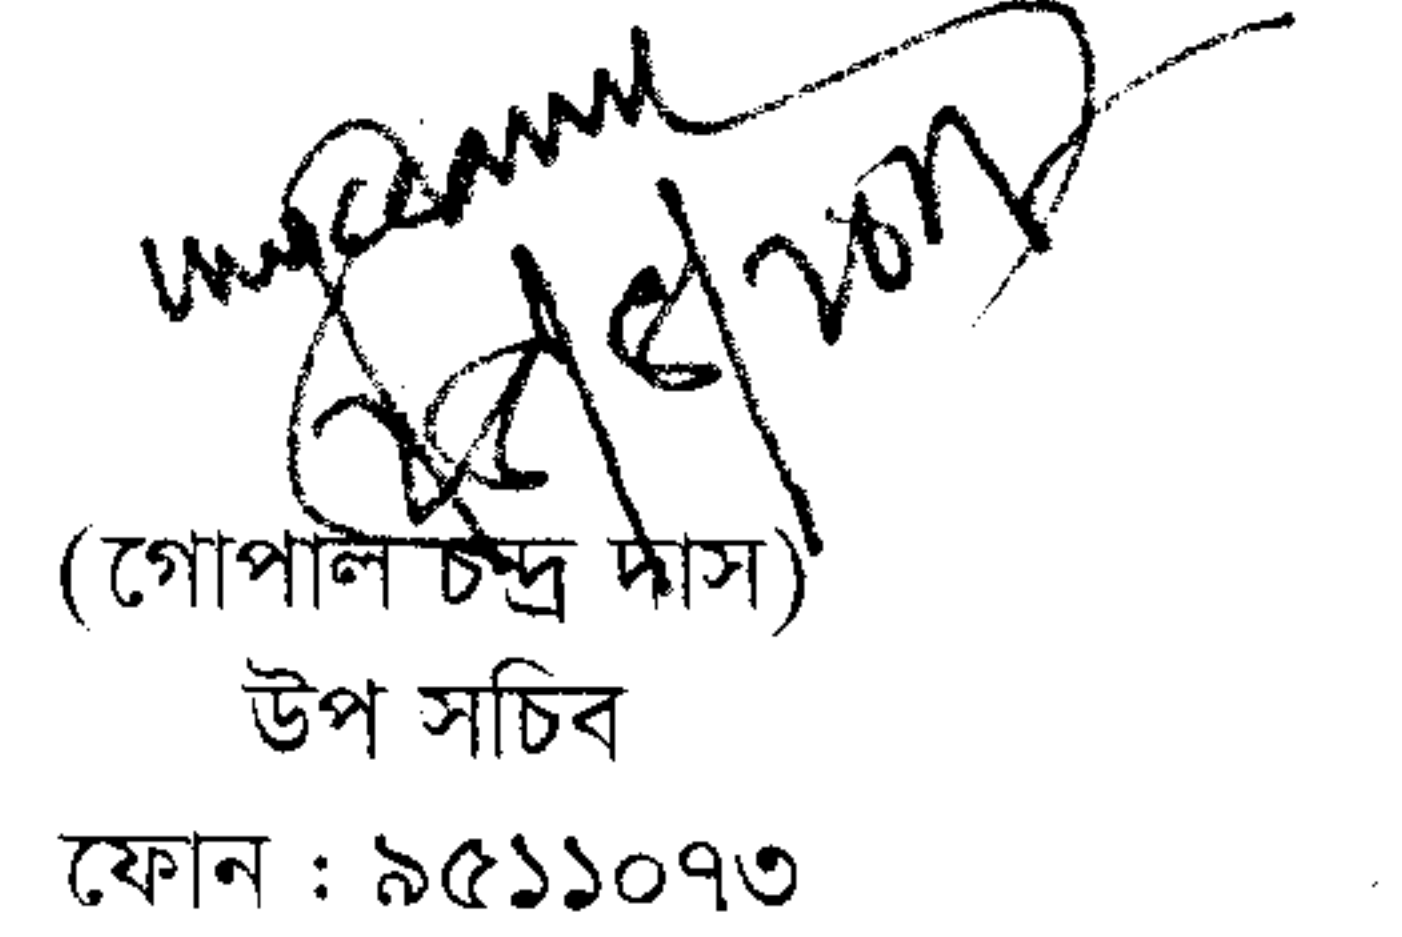 (গোপাল চন্দ্র দাস)
উপ সচিব
ফোন : ৯৫১১০৭৩